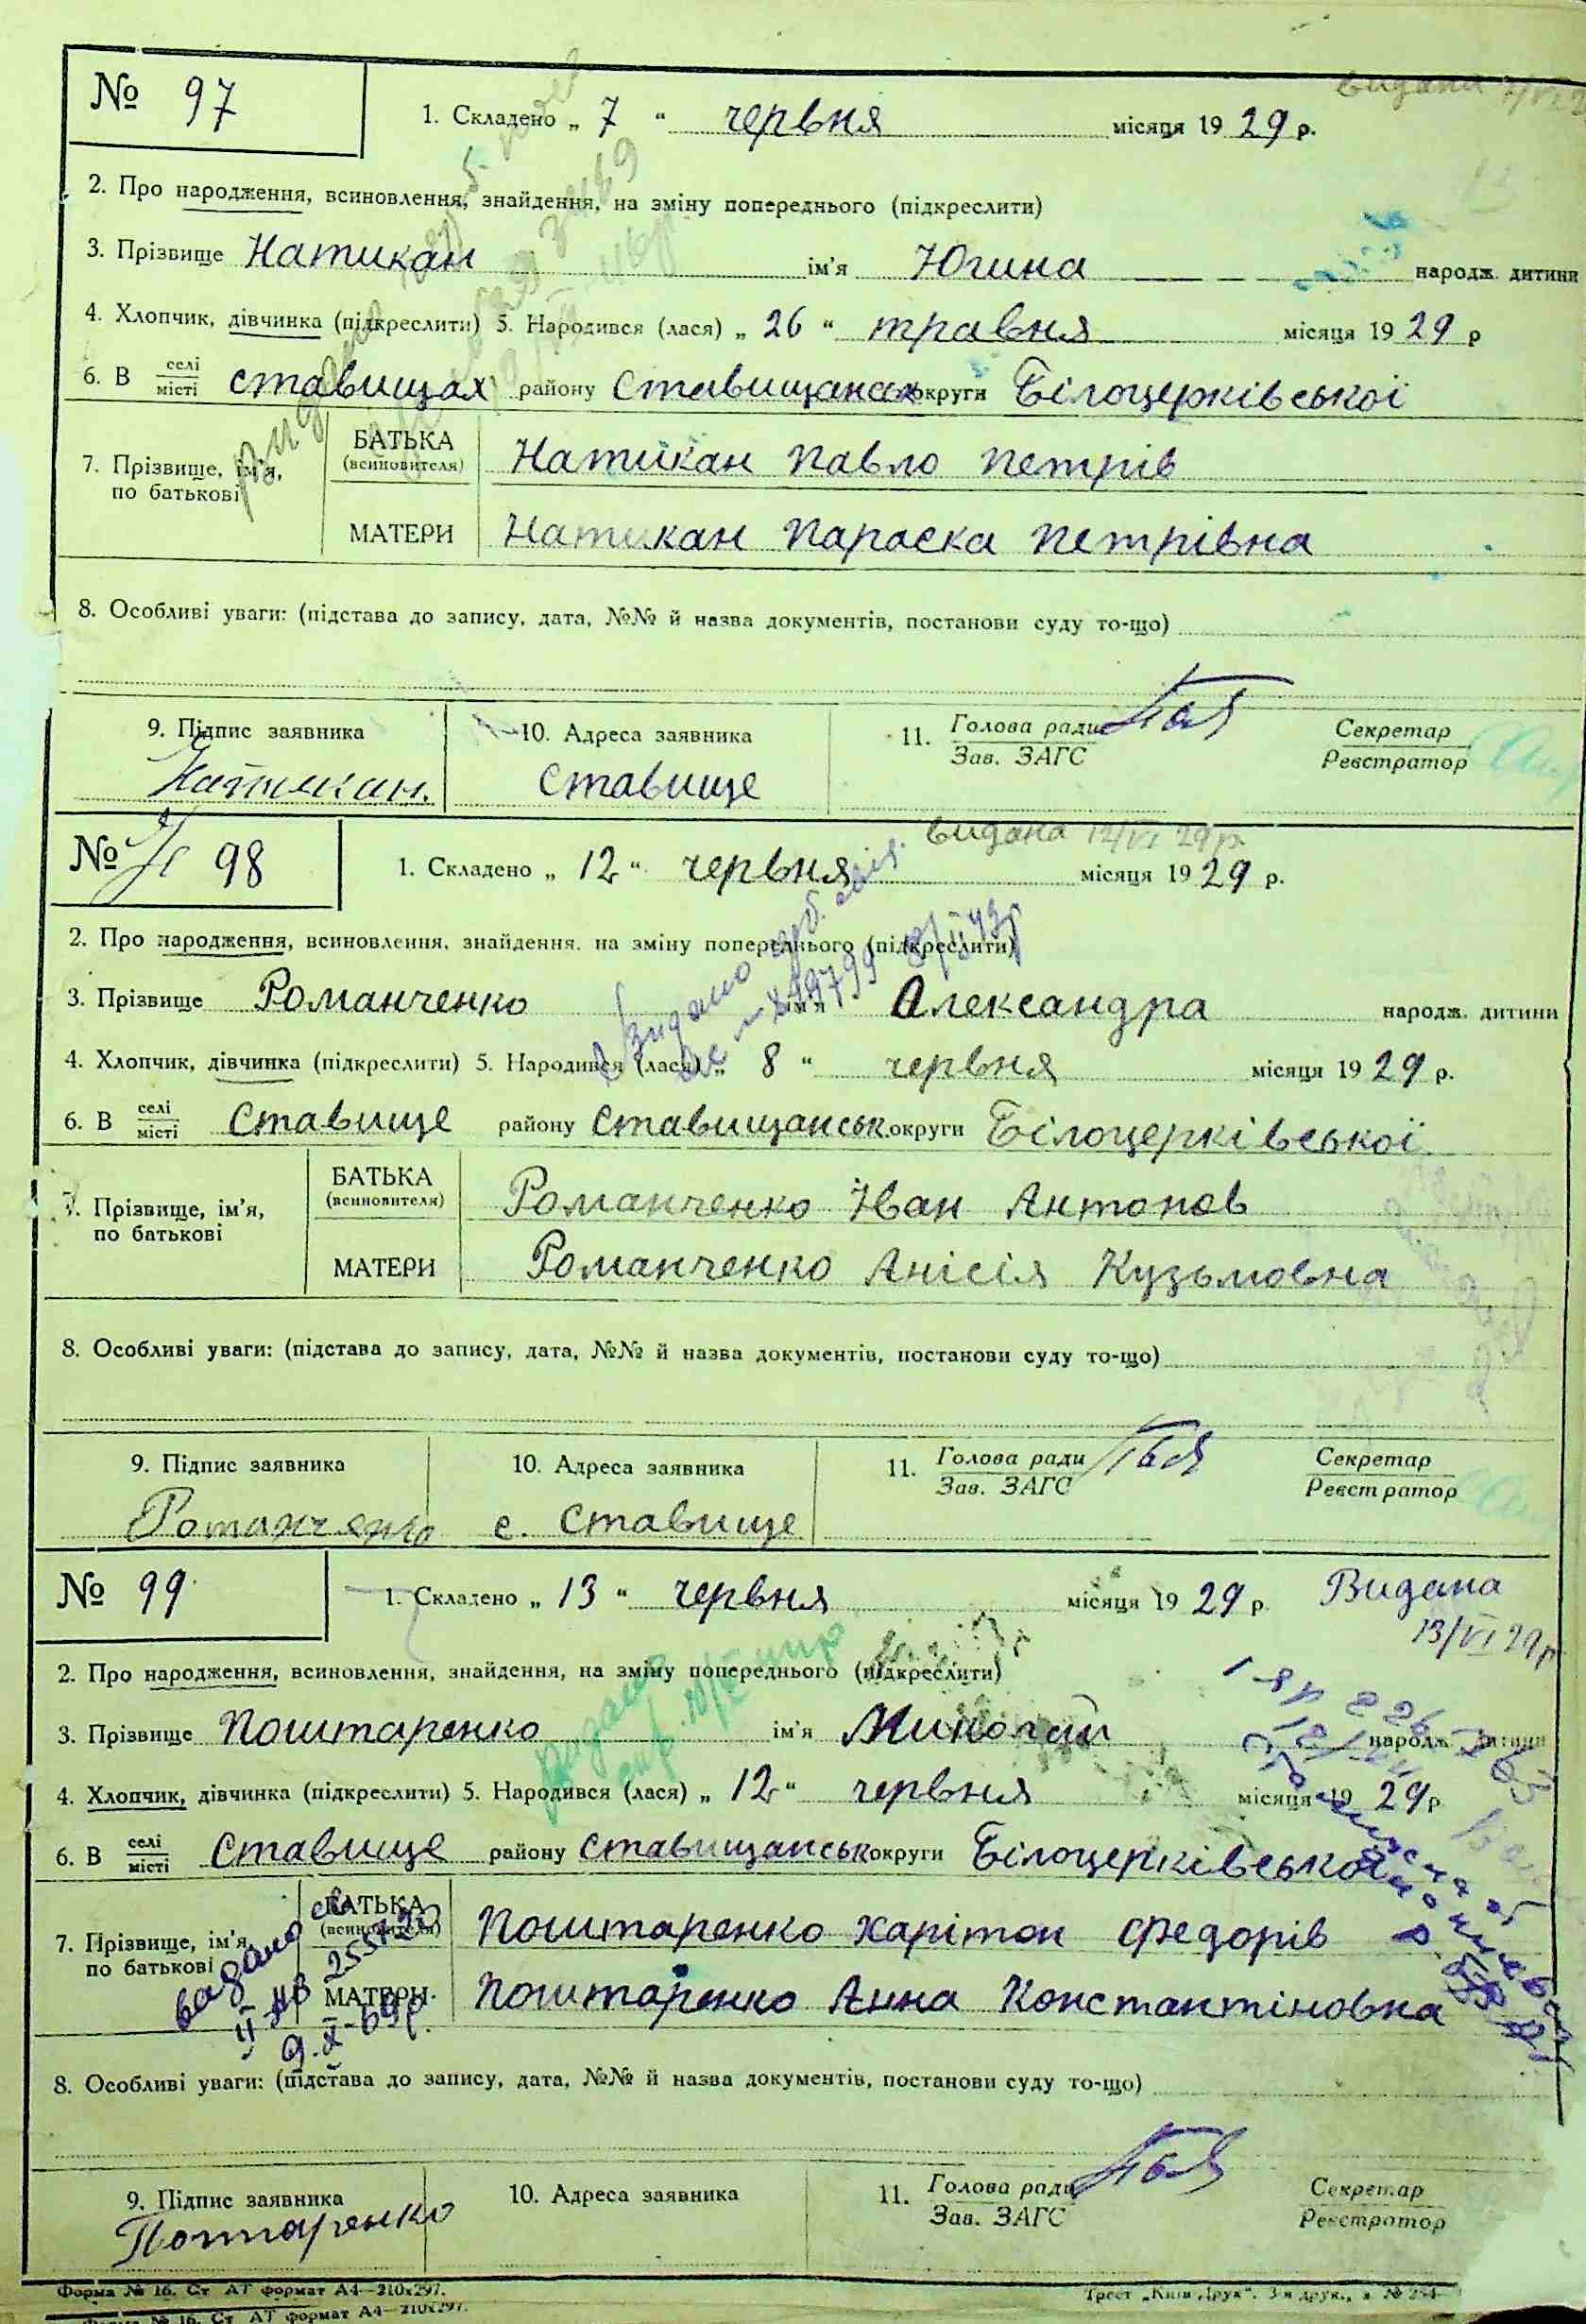 № 97
1. Складено „ 7 “ червня місяця 19 29 р.
2. Про народження, всиновлення, знайдення, на зміну попереднього (підкреслити)
3. Прізвище Натикан ім'я Югина народж. дитини
4. Хлопчик, дівчинка (підкреслити) 5. Народився (лася) „ 26 “ травня місяця 19 29 р
6. В селі/місті ставищах району Ставищанськ округи Білоцерківської
7. Прізвище, ім'я, по батькові
БАТЬКА (всиновителя) Натикан Павло Петрів
МАТЕРИ Натикан Параска Петрівна
8. Особливі уваги: (підстава до запису, дата, №№ й назва документів, постанови суду то-що)
9. Підпис заявника 10. Адреса заявника 11. Голова ради Секретар
Зав. ЗАГС Реєстратор
Натикан. Ставище
№ 98
видана 12/VI 29 р.
1. Складено „ 12 “ червня місяця 19 29 р.
2. Про народження, всиновлення, знайдення, на зміну попереднього (підкреслити)
3. Прізвище Романченко ім'я Александра народж. дитини
4. Хлопчик, дівчинка (підкреслити) 5. Народився (лася) „ 8 “ червня місяця 19 29 р.
6. В селі/місті Ставище району Ставищанськ округи Білоцерківської
7. Прізвище, ім'я, по батькові
БАТЬКА (всиновителя) Романченко Іван Антонов
МАТЕРИ Романченко Анісія Кузьмовна
8. Особливі уваги: (підстава до запису, дата, №№ й назва документів, постанови суду то-що)
9. Підпис заявника 10. Адреса заявника 11. Голова ради Секретар
Зав. ЗАГС Реєстратор
Романченко с. Ставище
№ 99
1. Складено „ 13 “ червня місяця 19 29 р. Видана
13/VI 29 р.
2. Про народження, всиновлення, знайдення, на зміну попереднього (підкреслити)
3. Прізвище Поштаренко ім'я Миколай народж. дитини
4. Хлопчик, дівчинка (підкреслити) 5. Народився (лася) „ 12 “ червня місяця 19 29 р
6. В селі/місті Ставище району Ставищанськ округи Білоцерківської
7. Прізвище, ім'я, по батькові
БАТЬКА (всиновителя) Поштаренко Харітон Федорів
МАТЕРИ Поштаренко Анна Константіновна
8. Особливі уваги: (підстава до запису, дата, №№ й назва документів, постанови суду то-що)
9. Підпис заявника 10. Адреса заявника 11. Голова ради Секретар
Зав. ЗАГС Реєстратор
Поштаренко
Форма № 16. Ст АТ формат А4—210х297. Трест „Київ-Друк“. 3-я друк.
Форма № 16. Ст АТ формат А4—210х297.